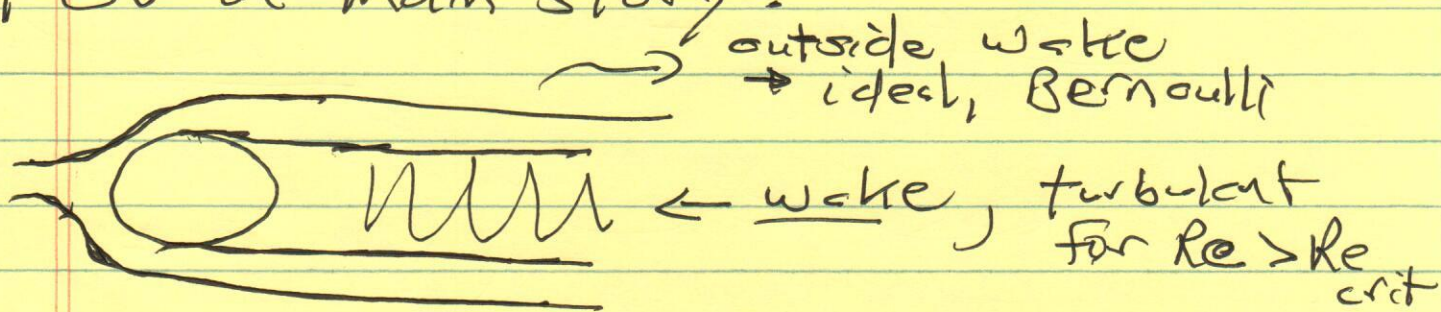 main story.
outside wake
→ ideal, Bernoulli
← wake, turbulent
for Re > Re crit